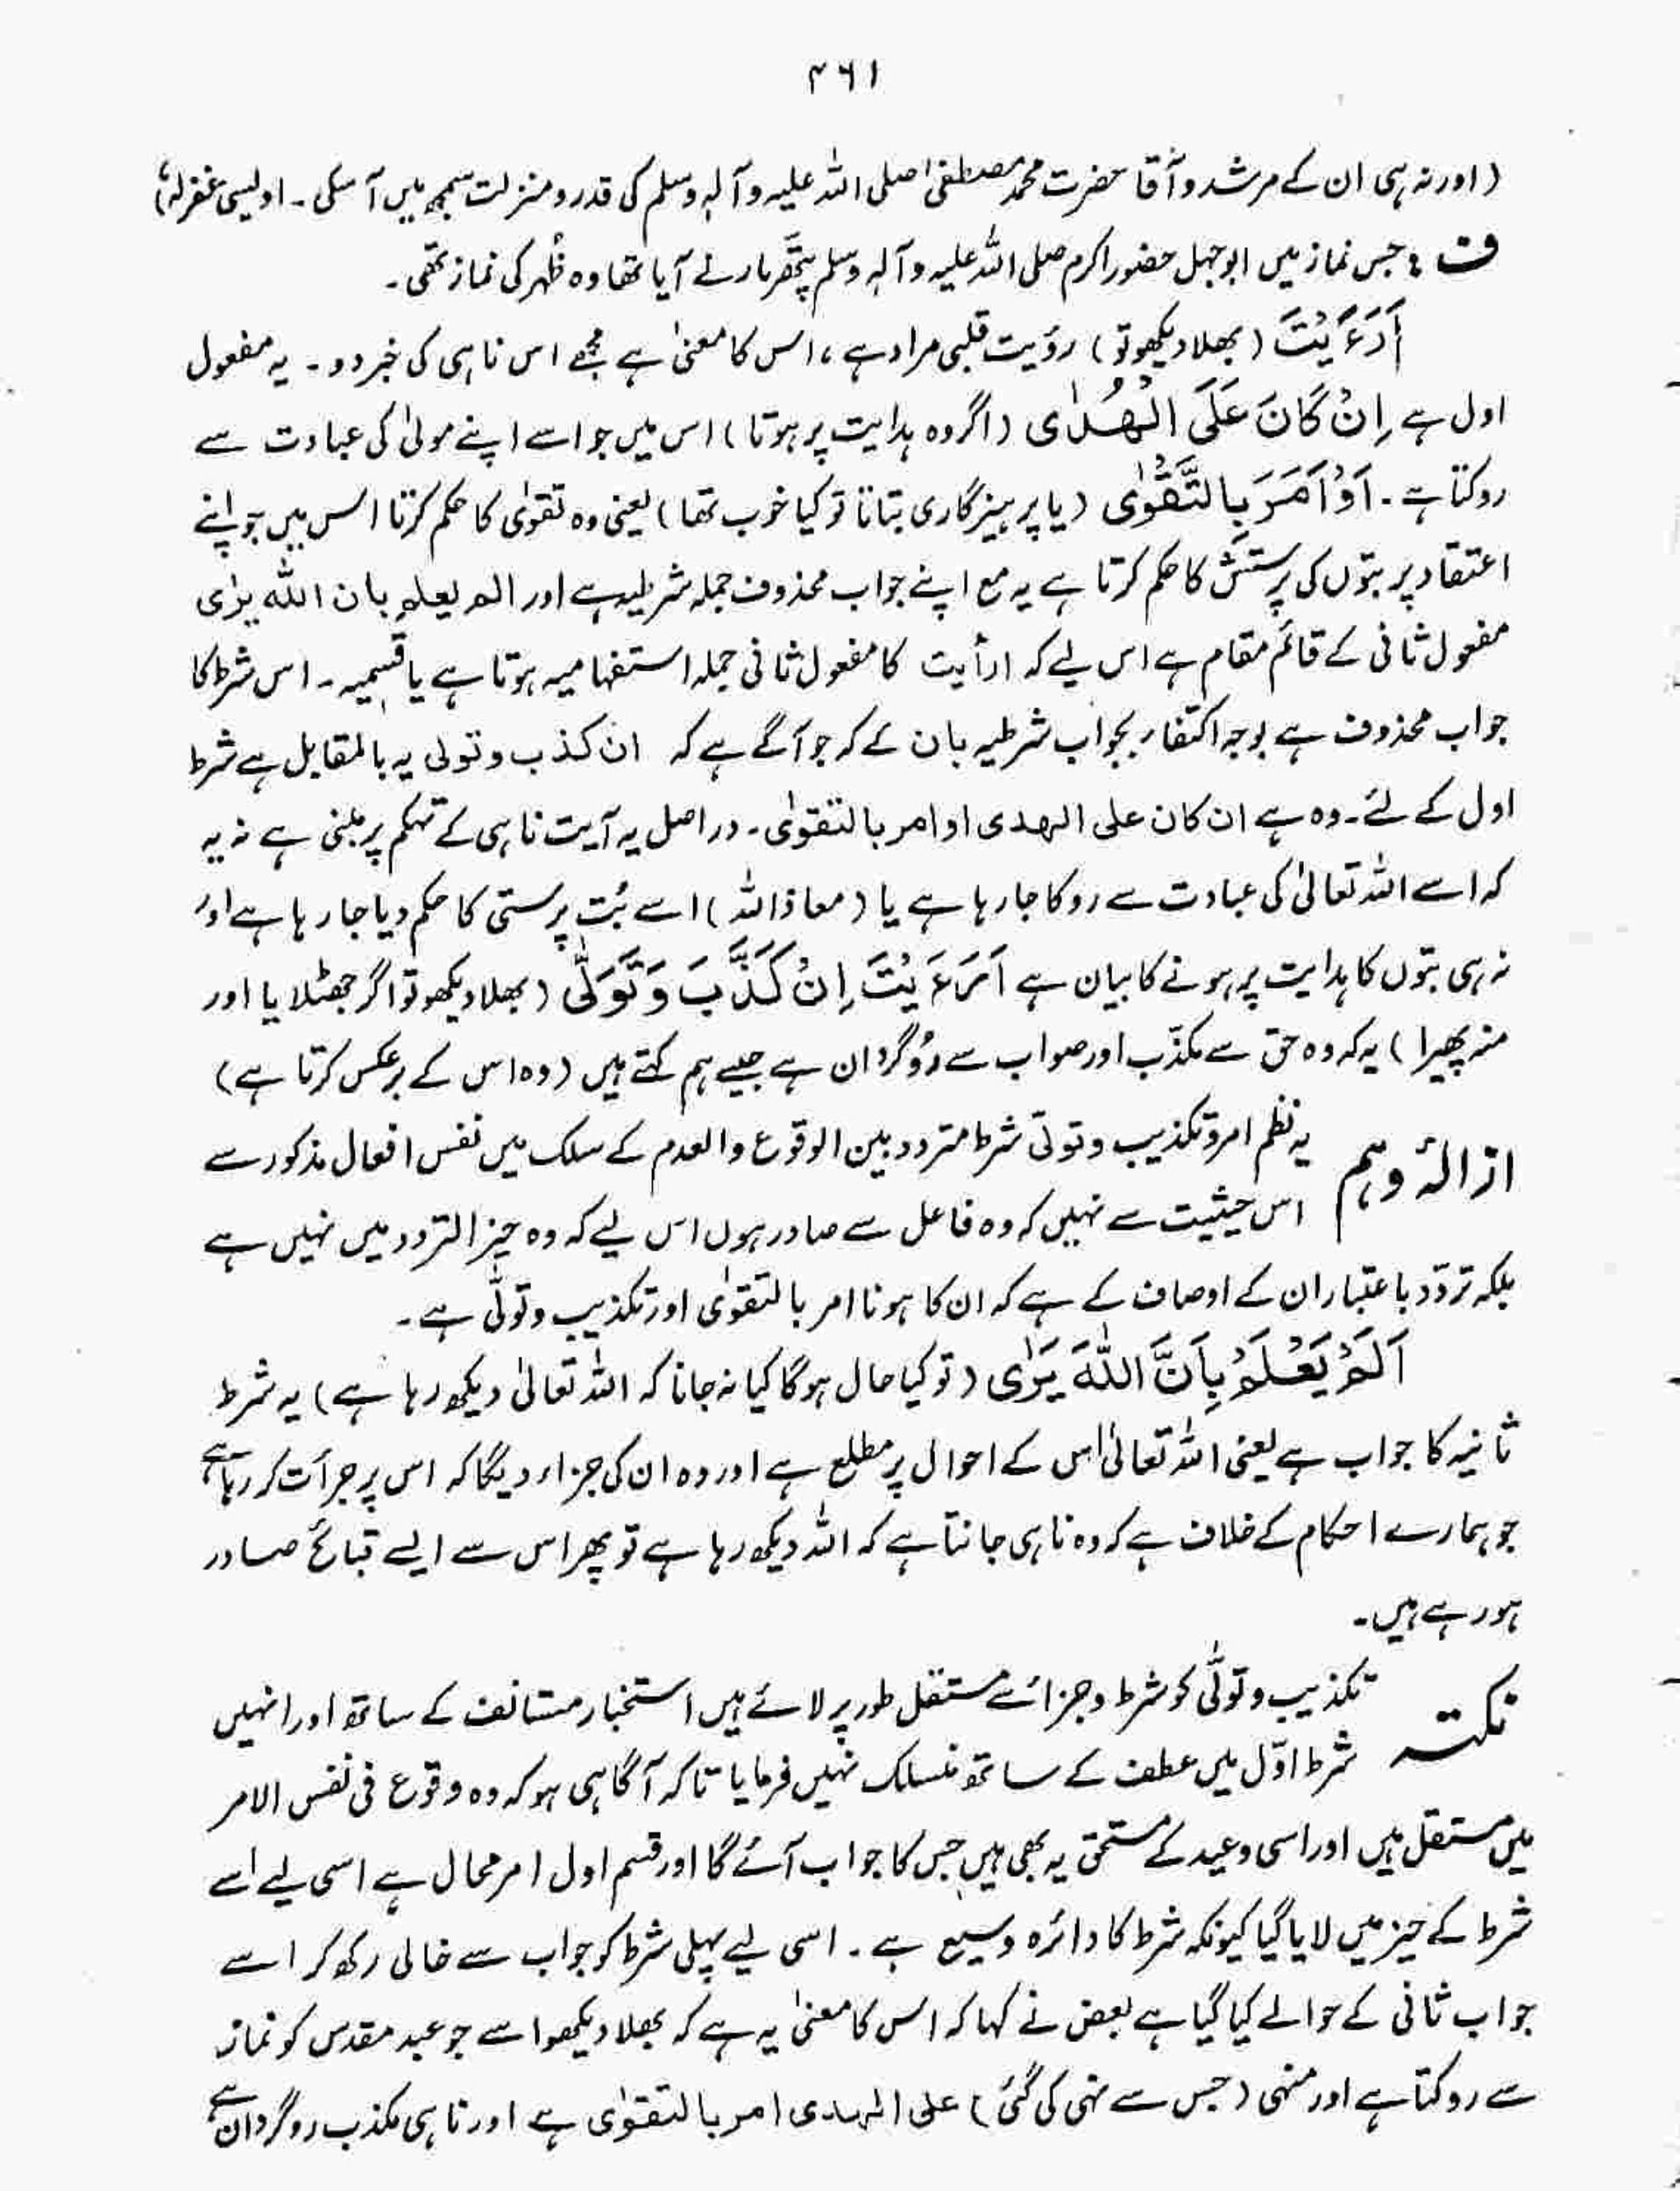 ۴۶۱
(اور نہ ہی ان کے مرشد و آقا حضرت محمد مصطفیٰ صلی اللہ علیہ وآلہٖ وسلم کی قدر و منزلت سمجھ میں آ سکی ۔ اویسی غفرلہٗ)
ف : جس نماز میں ابوجہل حضور اکرم صلی اللہ علیہ وآلہٖ وسلم پتھر مارنے آیا تھا وہ ظُہر کی نماز تھی ۔
أَرَءَيْتَ (بھلا دیکھو تو) رؤیت قلبی مراد ہے ، اس کا معنیٰ ہے مجھے اس ناہی کی خبر دو ۔ یہ مفعول
اول ہے اِنْ كَانَ عَلَى الْهُدٰى (اگر وہ ہدایت پر ہوتا) اس میں جو اسے اپنے مولیٰ کی عبادت سے
روکتا ہے ۔ اَوْ اَمَرَ بِالتَّقْوٰى (یا پرہیزگاری بتاتا تو کیا خوب تھا) یعنی وہ تقویٰ کا حکم کرتا اس میں جو اپنے
اعتقاد پر بتوں کی پرستش کا حکم کرتا ہے یہ مع اپنے جواب محذوف جملہ شرطیہ ہے اور الم یعلم بان اللہ یرٰی
مفعول ثانی کے قائم مقام ہے اس لیے کہ ارأیت کا مفعول ثانی جملہ استفہامیہ ہوتا ہے یا قسمیہ ۔ اس شرط کا
جواب محذوف ہے بوجہ اکتفاء بجواب شرطیہ بان کے کہ جو آگے ہے کہ ان کذب وتولی یہ بالمقابل ہے شرط
اول کے لئے ۔ وہ ہے ان کان علی الھدی او امر بالتقوٰی ۔ دراصل یہ آیت ناہی کے تہکم پر مبنی ہے نہ یہ
کہ اسے اللہ تعالیٰ کی عبادت سے روکا جا رہا ہے یا (معاذ اللہ) اسے بُت پرستی کا حکم دیا جا رہا ہے اور
نہ ہی بتوں کا ہدایت پر ہونے کا بیان ہے اَرَءَيْتَ اِنْ كَذَّبَ وَتَوَلّٰى (بھلا دیکھو تو اگر جھٹلایا اور
منہ پھیرا) یہ کہ وہ حق سے مکذّب اور صواب سے رُوگردان ہے جیسے ہم کہتے ہیں (وہ اس کے برعکس کرتا ہے)
ازالۂ وہم یہ نظم امر و تکذیب و تولّی شرط متردد بین الوقوع والعدم کے سلک میں نفس افعال مذکور سے
اس حیثیت سے نہیں کہ وہ فاعل سے صادر ہوں اس لیے کہ وہ حیز التردد میں نہیں ہے
بلکہ تردّد باعتبار ان کے اوصاف کے ہے کہ ان کا ہونا امر بالتقوٰی اور تکذیب و تولّی ہے ۔
اَلَمْ يَعْلَمْ بِاَنَّ اللّٰهَ يَرٰى (تو کیا حال ہوگا کیا نہ جانا کہ اللہ تعالیٰ دیکھ رہا ہے) یہ شرط
ثانیہ کا جواب ہے یعنی اللہ تعالیٰ اس کے احوال پر مطلع ہے اور وہ ان کی جزاء دیگا کہ اس پر جرأت کر رہا ہے
جو ہمارے احکام کے خلاف ہے کہ وہ ناہی جانتا ہے کہ اللہ دیکھ رہا ہے تو پھر اس سے ایسے قبائح صادر
ہو رہے ہیں ۔
نکتہ تکذیب و تولّی کو شرط و جزا سے مستقل طور پر لائے ہیں استخبار مستانف کے ساتھ اور انہیں
شرط اوّل میں عطف کے ساتھ منسلک نہیں فرمایا تاکہ آگاہی ہو کہ وہ وقوع فی نفس الامر
میں مستقل ہیں اور اسی وعید کے مستحق یہ بھی ہیں جس کا جواب آئے گا اور قسم اول امر محال ہے اسی لیے اسے
شرط کے حیز میں لایا گیا کیونکہ شرط کا دائرہ وسیع ہے ۔ اسی لیے پہلی شرط کو جواب سے خالی رکھ کر اسے
جواب ثانی کے حوالے کیا گیا ہے بعض نے کہا کہ اس کا معنیٰ یہ ہے کہ بھلا دیکھو اسے جو عبد مقدس کو نماز
سے روکتا ہے اور منہی (جس سے نہی کی گئی) علی الہدی امر بالتقوٰی ہے اور ناہی مکذب روگردان ہے